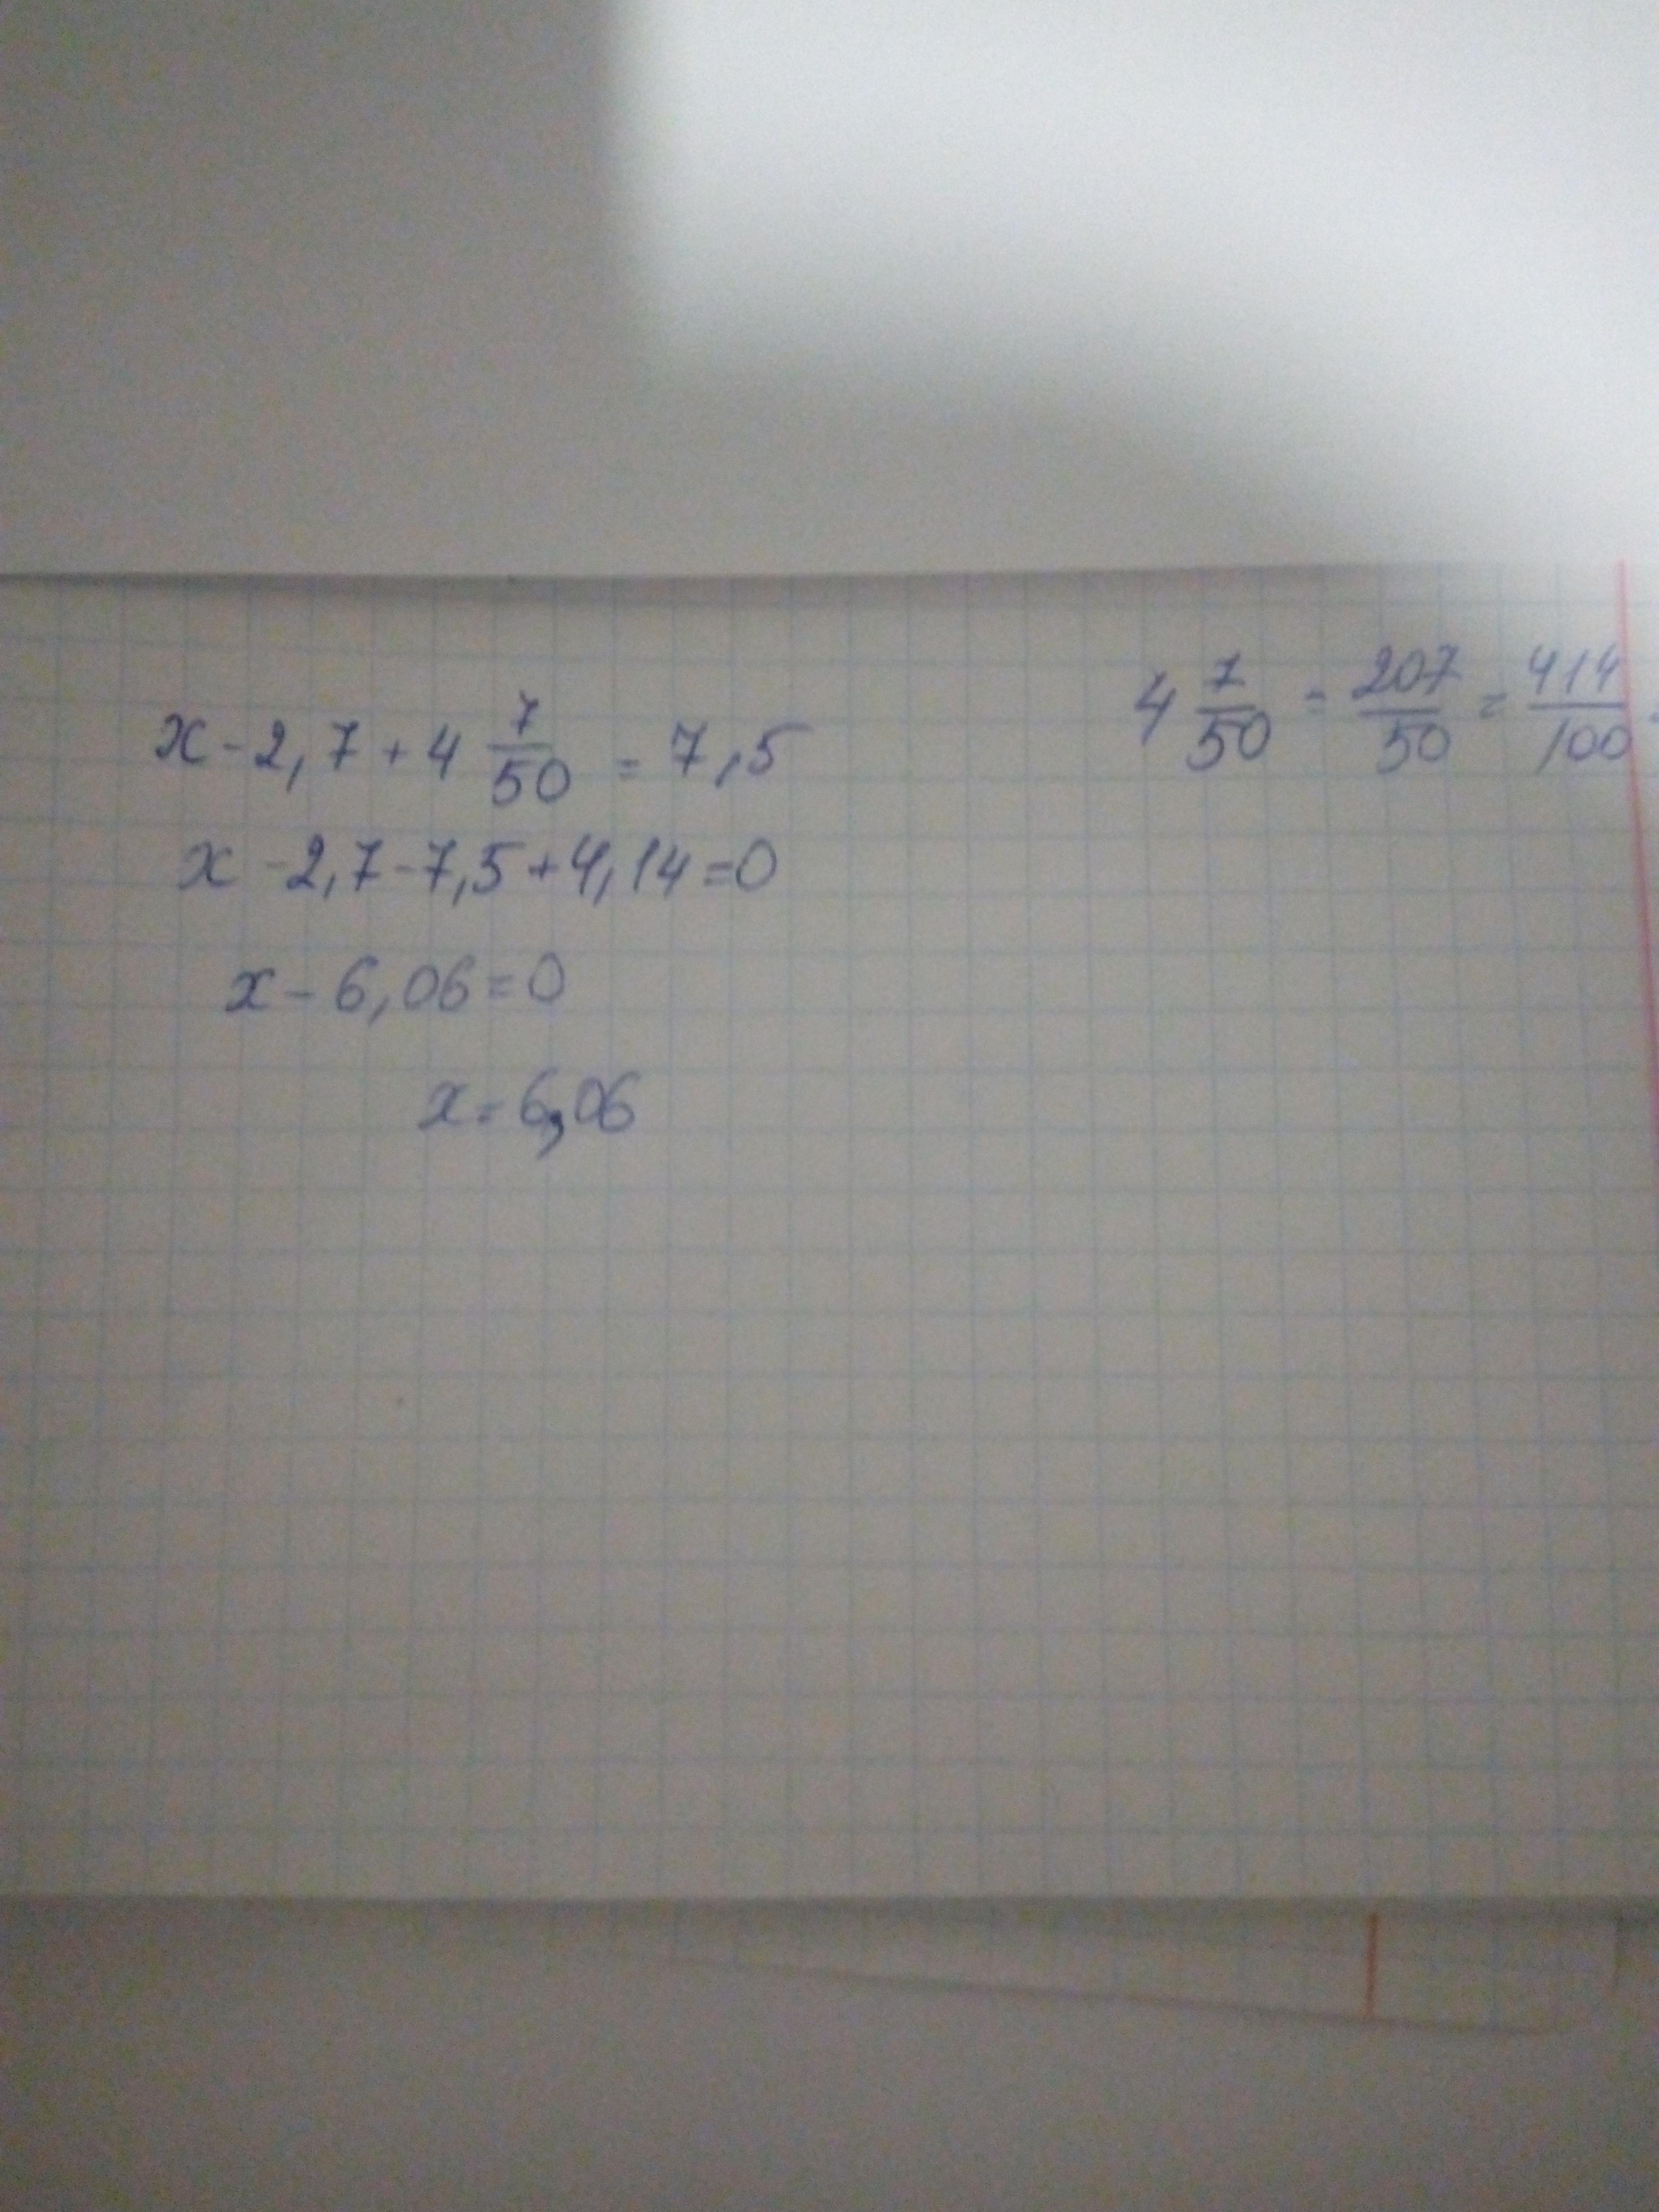 x - 2,7 + 4 7/50 = 7,5
4 7/50 = 207/50 = 414/100
x - 2,7 - 7,5 + 4,14 = 0
x - 6,06 = 0
x = 6,06